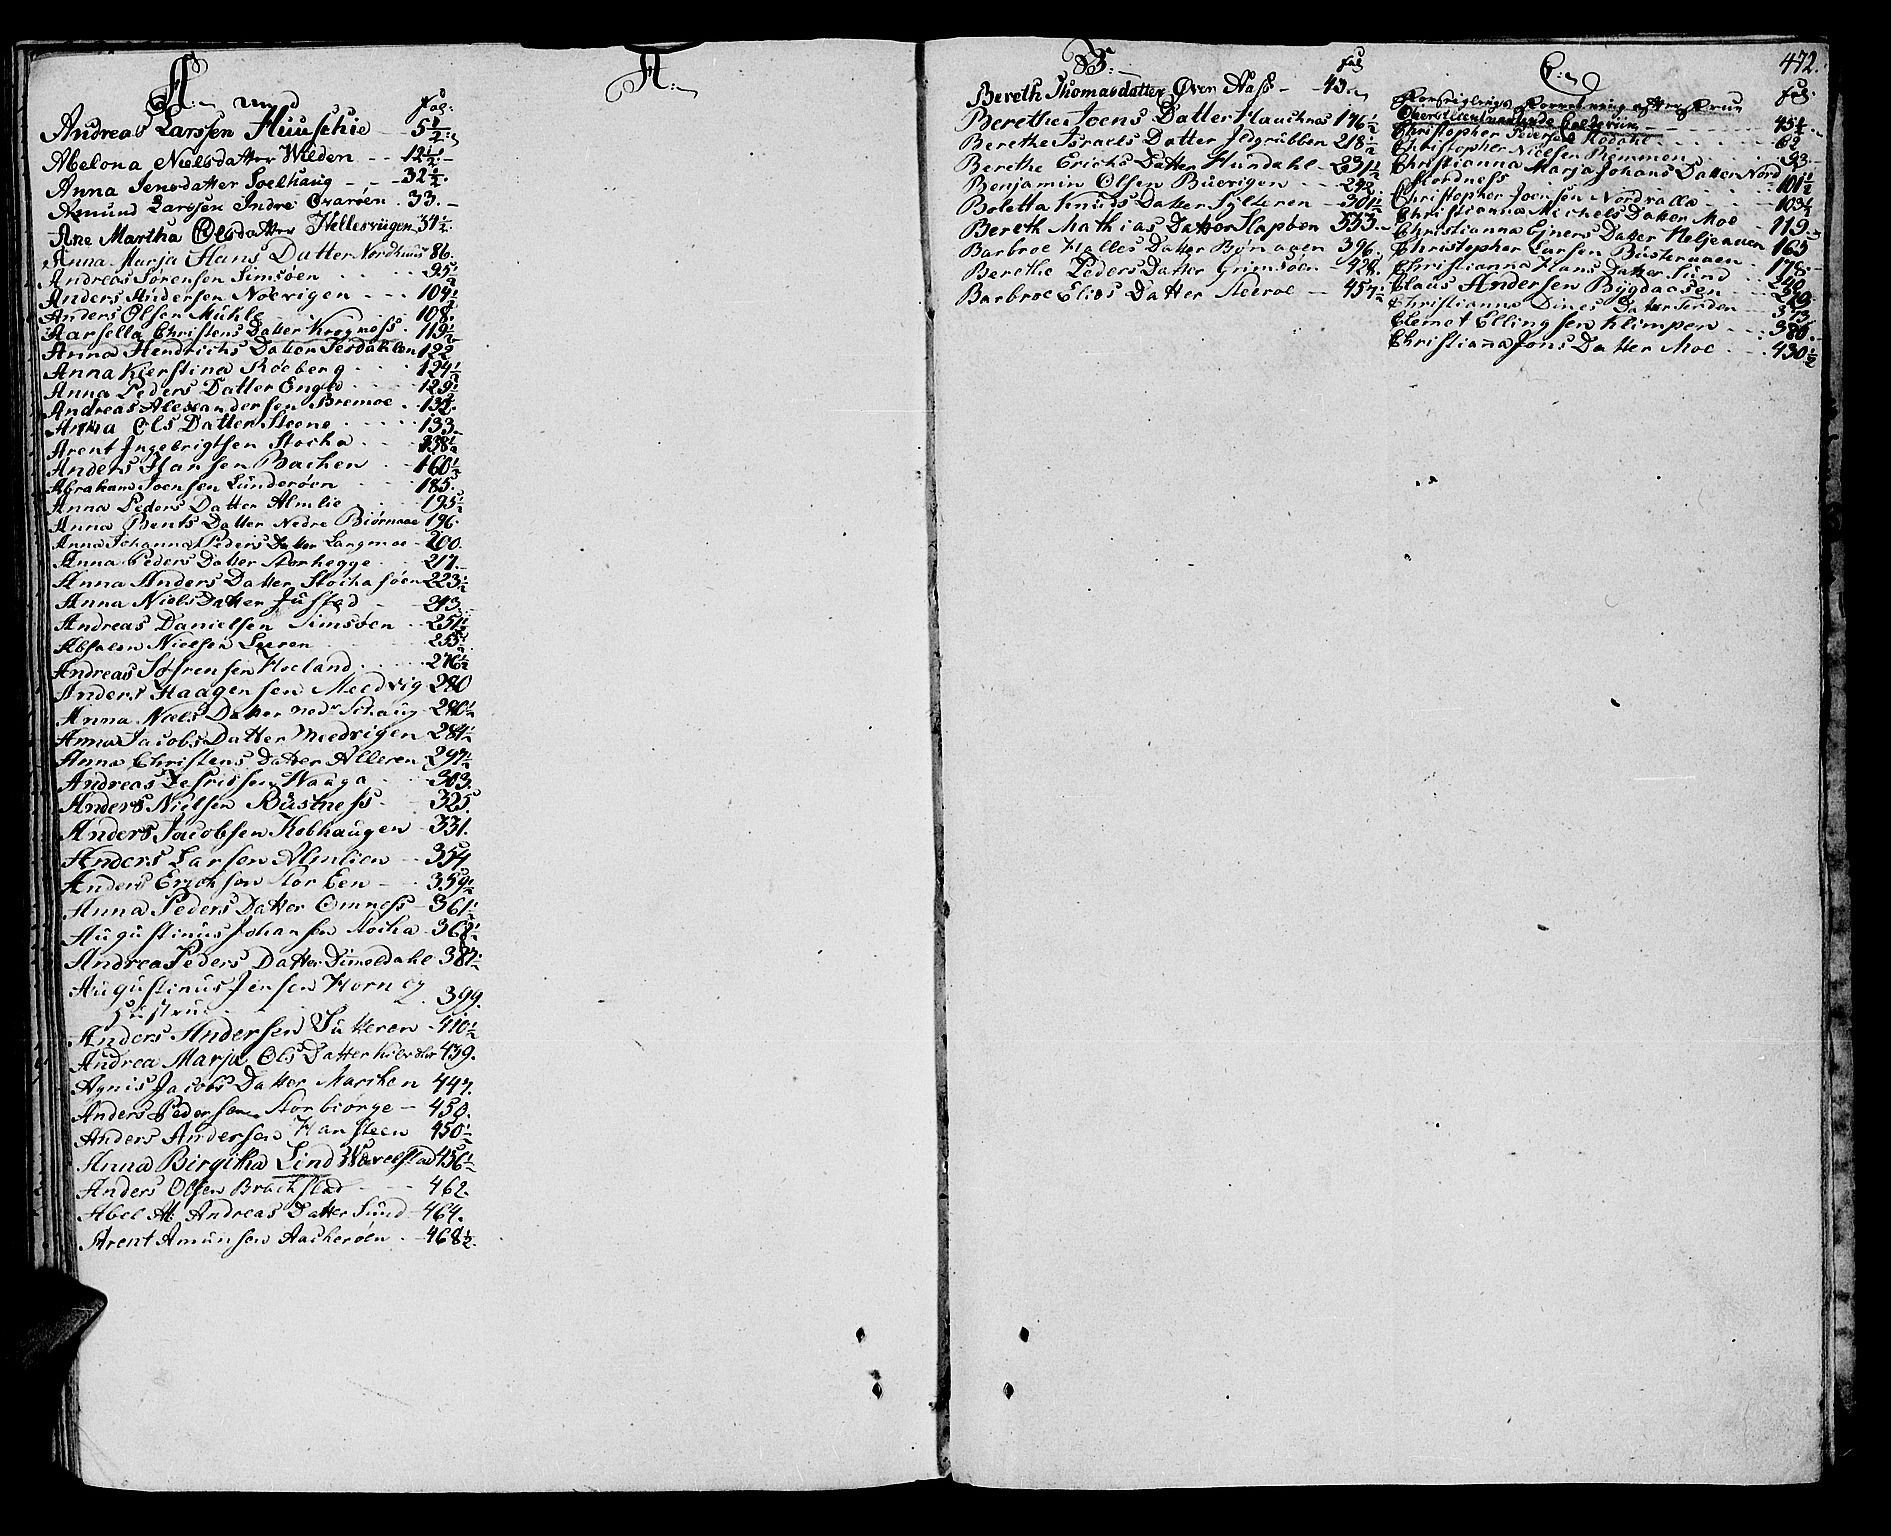 A:
Fol:
Andreas Larssen Huuschie 5 1/2
Abelona Nielsdatter Wilden -- 12 1/2 -
Anna Jensdatter Soelhaug - - 32 1/2
Amund Larssen Indre 33. -
Ane Martha Olsdatter 34 1/2
Anna Marja Hans Datter Nordhuus 86.
Andreas Sørensen Simsøen 95 1/2
Anders Andersen Noevigen 104 1/2
Anders Olsen Mühle 108.
Marsella Christens Datter Krogness 119 1/2
Anna Hendrichs Datter Jerdahlen 122
Anna Kierstina Roeberg 124 1/2
Anna Peders Datter Enged 129 1/2
Andreas Alexandersen Bremoe 132.
Anna Ols Datter Steene 133
Arent Ingebrigtsen Stocha 138 1/2
Anders Hansen Bachen 160 1/2
Abraham Joensen Lunderøen 185.
Anna Peders Datter Almlie 195 1/2
Anna Bents Datter Nedre Biørnaae 196.
Anna Johanna Peders Datter Langmoe 200.
Anna Peders Datter Storhegge 217.
Anna Anders Datter Stochasøen 223 1/2
Anna Niels Datter Justad 243.
Andreas Danielsen Simsøen 251 1/2
Absalon Nielsen Leeren 255 1/2
Andreas Søfrensen Hoeland 276 1/2
Anders Haagensen Meedvig 280
Anna Niels Datter nedr Schaug 280 1/2
Anna Jacobs Datter Meedvigen 284 1/2
Anna Christens Datter Alteren 297 1/2
Andreas Zefridsen Waaga 303.
Anders Nielsen Büstness 325.
Anders Jacobsen Kobhaugen 331.
Anders Larsen Almlien 354
Anders Erichsen Storben 359 1/2
Anna Peders Datter Omness 361 1/2
Augustinus Johansen Stocha 368 1/2
Andrea Peders Datter Dümeldahl 387 1/2
Augustinus Jensen Horn og
Hustrue 399.
Anders Andersen Sutteren 410 1/2
Andrea Marja Ols Datter 439.
Agnis Jacobs Datter Marihen 447.
Anders Pedersen Storbiørge 450.
Anders Andersen Hansteen 450 1/2
Anna Birgitha Lind 456 1/2
Anders Olsen Brachstad 462.
Abel M. Andreas Datter Sund 464.
Arent Amunsen Aacherøen 468 1/2
A:
B:
fol
Bereth Thomasdatter Øvre Næss 43.
Berethe Joens Datter Haachnes 176 1/2
Berethe Israels Datter Ildgrubben 218 1/2
Berethe Erichs Datter Hundahl 231 1/2
Benjamin Olsen Buevigen 248.
Boletta Knuds Datter Sylteren 301 1/2
Bereth Mathias Datter Slapøen 353.
Barbroe Halles Datter Børnaaen 396.
Berethe Peders Datter Grimsøen 428.
Barbroe Elias Datter Steeroe 457 1/2
472.
C:
fol:
Forseiglings Forretning efter Frue
Oberstlieutnantinde Coldevin 45 1/2
Christopher Pedersen Rosdahl 62
Christopher Nielsen Remmen 93.
Christianna Marja Johans Datter Nord
Stordness 101 1/2
Christopher Joensen Nordvalla 103 1/2
Christianna Michels Datter Moe 119.
Christianna Ejners Datter Heljeaaen 165
Christopher Larsen Büsteraaen 178.
Christianna Hans Datter Lund 240.
Claus Andersen Bygdaasen 279.
Christianna Dines Datter Forden 373.
Clemet Ellingsen Klimpen 386.
Christianna Jons Datter Moe 430 1/2